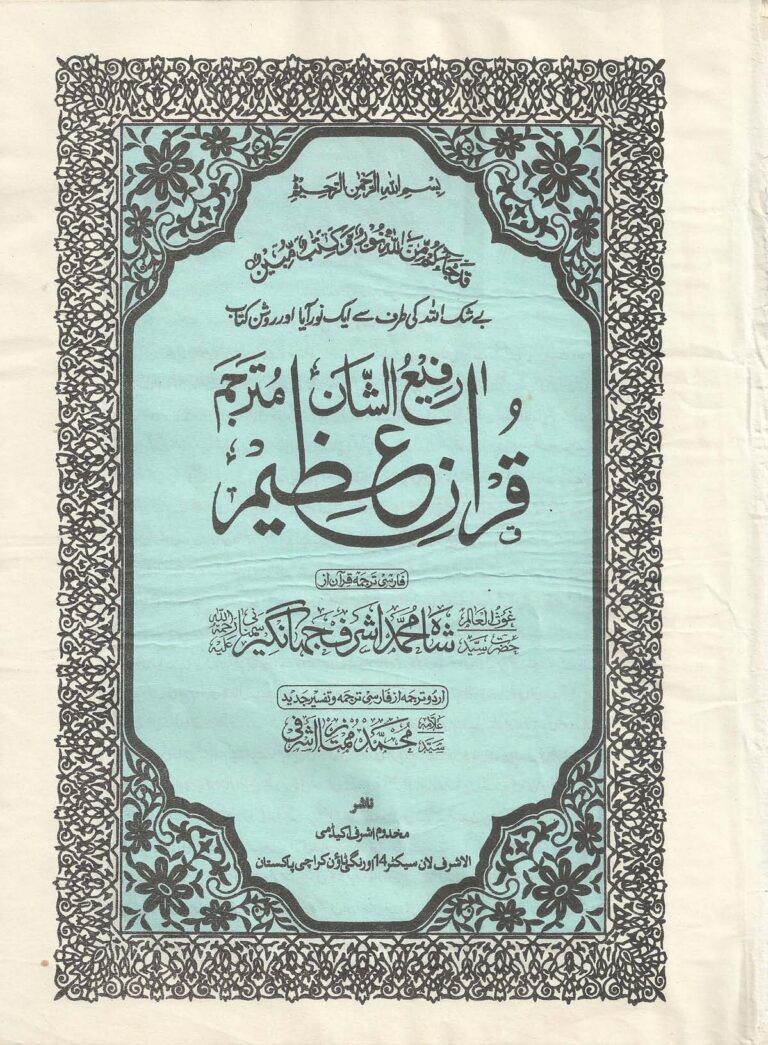 بسم الله الرحمن الرحیم
قد جاءکم من الله نور و کتٰب مبین
بے شک اللہ کی طرف سے ایک نور آیا اور روشن کتاب
رفیع الشان مترجم
قرآن عظیم
فارسی ترجمہ قرآن از
غوث العالم حضرت سید شاہ محمد اشرف جہانگیر سمنانی رحمۃ اللہ علیہ
اردو ترجمہ از فارسی ترجمہ و تفسیر جدید
علامہ سید محمد ممتاز اشرفی
ناشر
مخدوم اشرف اکیڈمی
الاشرف لان سیکٹر 14 اورنگی ٹاؤن کراچی پاکستان